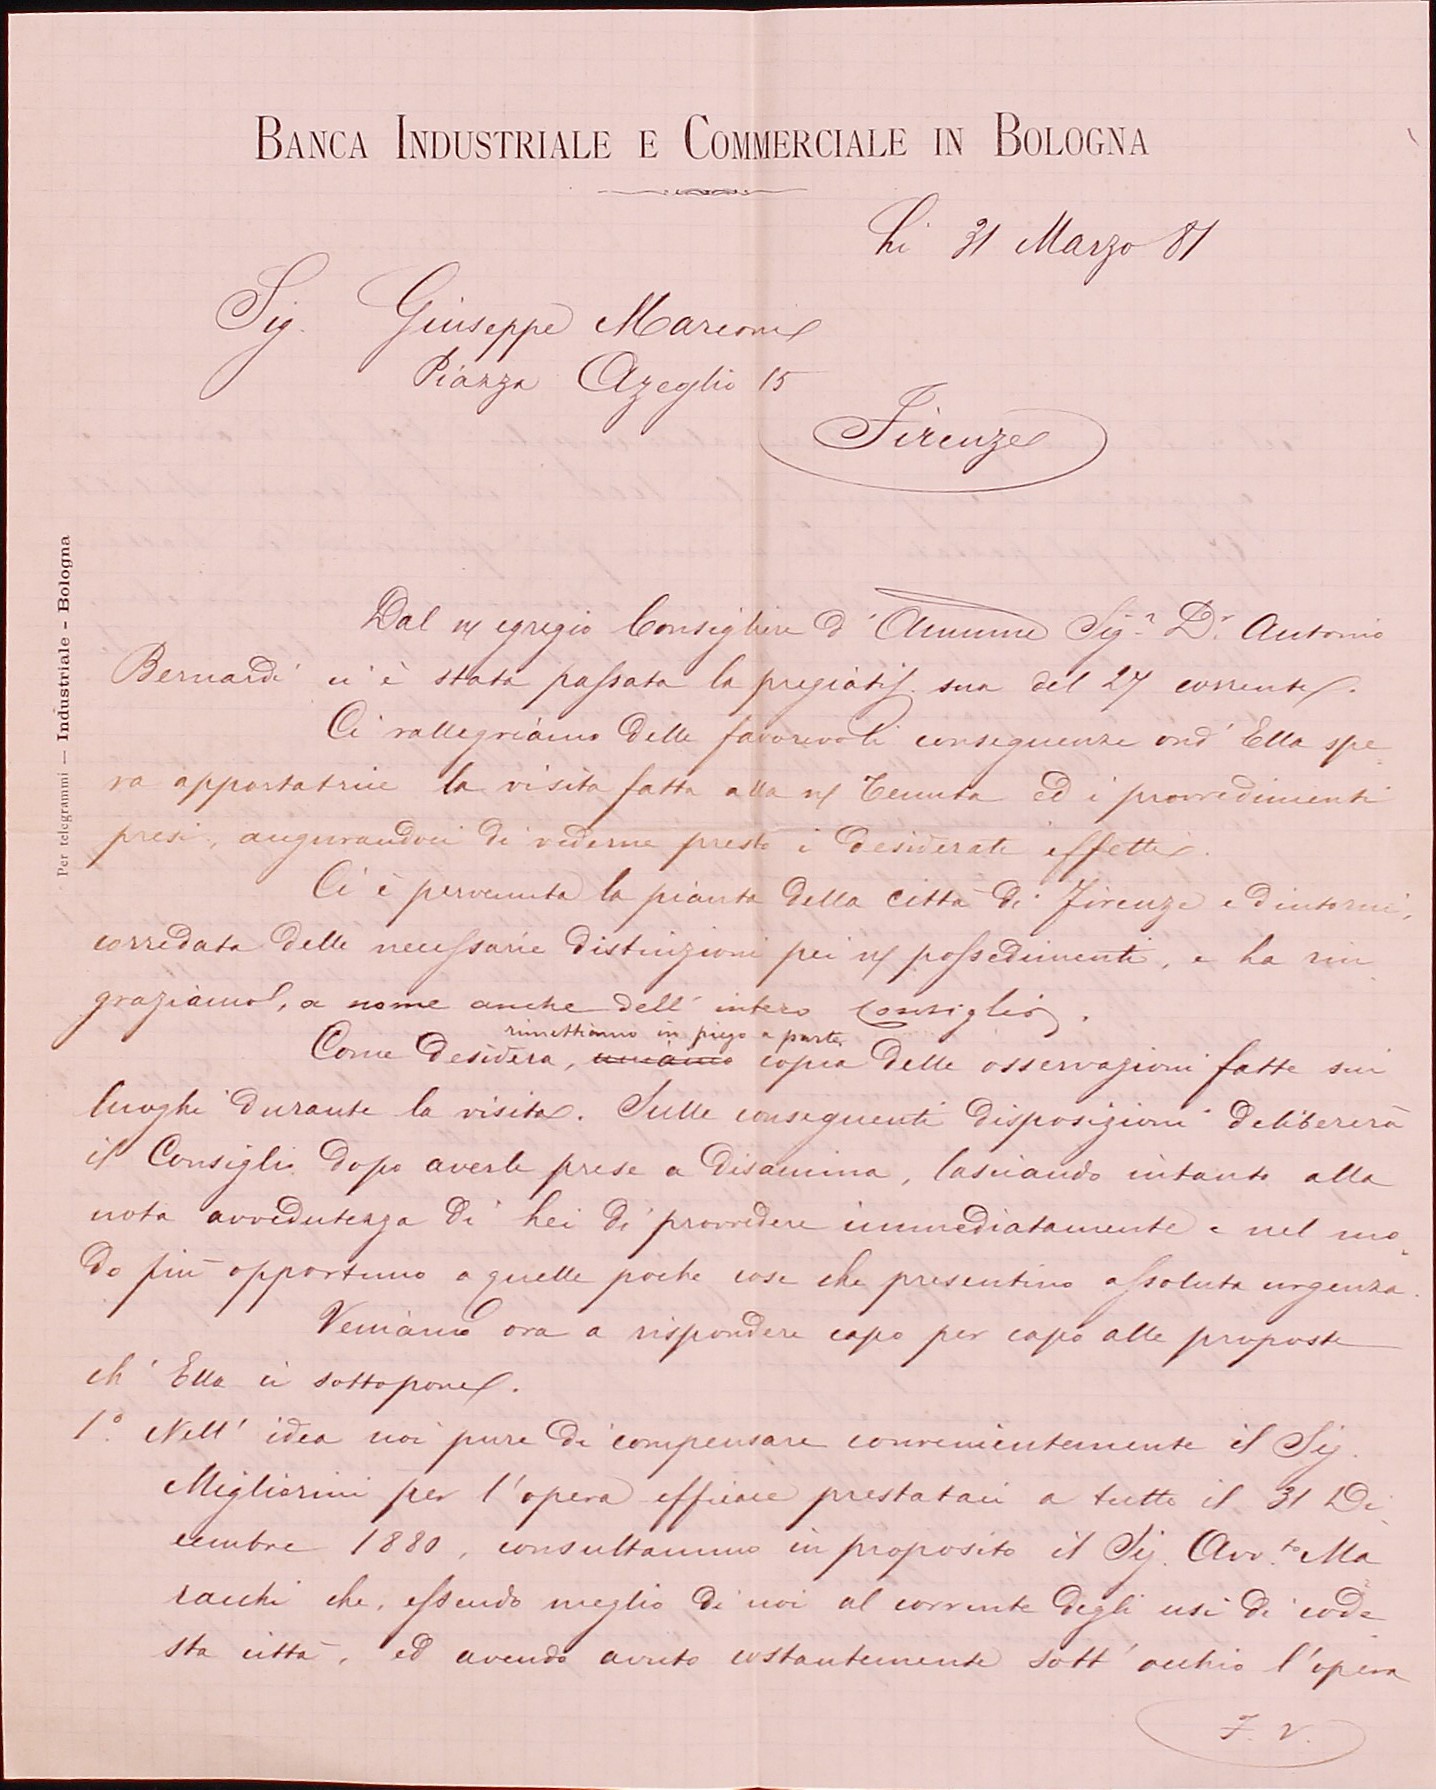 BANCA INDUSTRIALE E COMMERCIALE IN BOLOGNA
Li 31 Marzo 81
Sig. Giuseppe Marconi
Piazza Azeglio 15
Firenze
Per telegrammi — Industriale - Bologna
Dal n/ egregio Consigliere d'Ammne Sigr. Dr. Antonio
Bernardi ci è stata passata la pregiatis. sua del 27 corrente.
Ci rallegriamo delle favorevoli conseguenze ond' Ella spe-
ra apportatrice la visita fatta alla n/ Tenuta ed i provvedimenti
presi, augurandoci di vederne presto i desiderati effetti.
Ci è pervenuta la pianta della città di Firenze e dintorni,
corredata delle necessarie distinzioni pei n/ possedimenti, e La rin-
graziamo, a nome anche dell' intero Consiglio.
rimettiamo in piego a parte
Come desidera, uniamo copia delle osservazioni fatte sui
luoghi durante la visita. Sulle conseguenti disposizioni delibererà
il Consiglio dopo averle prese a disamina, lasciando intanto alla
nota avvedutezza di Lei di provvedere immediatamente e nel mo-
do più opportuno a quelle poche cose che presentino assoluta urgenza.
Veniamo ora a rispondere capo per capo alle proposte
ch' Ella ci sottopone.
1.° Nell' idea noi pure di compensare convenientemente il Sig.
Migliorini per l'opera efficace prestataci a tutto il 31 Di-
cembre 1880, consultammo in proposito il Sig. Avv.to Ma
racchi che, essendo meglio di noi al corrente degli usi di code-
sta città, ed avendo avuto costantemente sott' occhio l'opera
F. V.